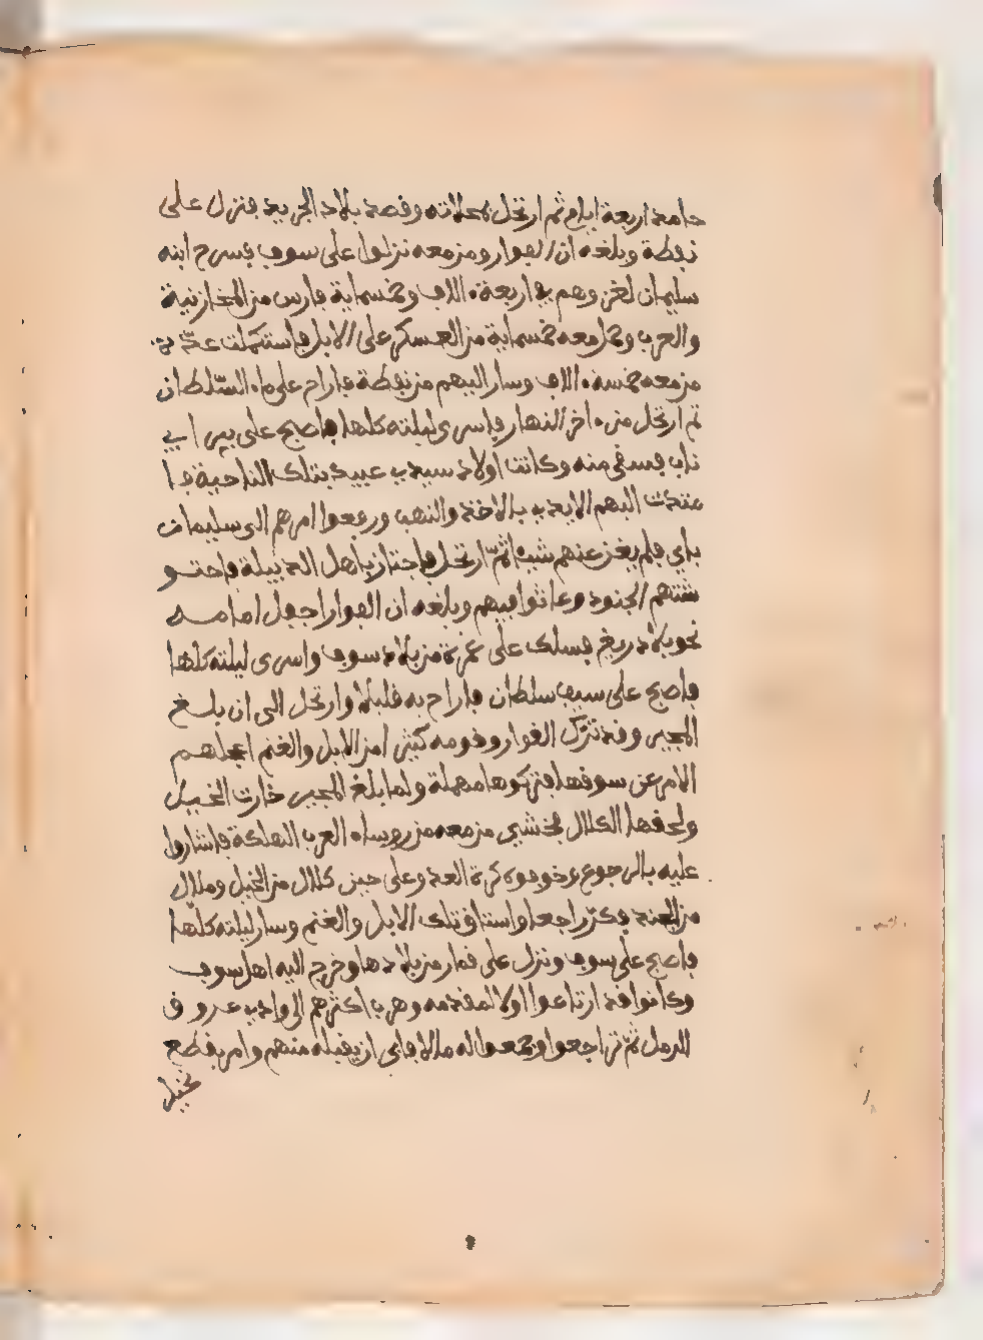 حامد اربعة ايام ثم ارتحل بمحلاته وقصد بلاد الجريد فنزل على
نفطة وبلغه ان الغوار ومن معه نزلوا على سوف فسرح ابنه
سليمان لغزوهم في اربعة ءالاف وخمسماية فارس من المخازنية
والعرب وحمل معه خمسماية من العسكر على الابل فاستكملت عدّة
من معه خمسة ءالاف وسار اليهم من نفطة فاراح على ماء السّلطان
ثم ارتحل من ءاخر النهار فاسرى ليلته كلها فاصبح على بير ابي
ناب فسقى منه وكانت اولاد سيدي عبيد بتلك الناحية فا
متدت اليهم الايدي بالاخذ والنهب ورفعوا امرهم الى سليمان
باي فلم يغن عنهم شيئا ثمّ ارتحل فاجتاز باهل الدبيلة فاحتو
شتهم الجنود وعاثوا فيهم وبلغه ان الغوار اجفل امامه
نحو بلاد ريغ فسلك على غمرة من بلاد سوف واسرى ليلته كلها
فاصبح على سيف سلطان فاراح به قليلا وارتحل الى ان بلغ
المجير وقد ترك الغوار وقومه كثيرا من الابل والغنم اعجلهم
الامر عن سوقها فتركوها مهملة ولما بلغ المجير خارت الخيل
ولحقها الكلال فخشي من معه من روساء العرب الهلكة فاشاروا
عليه بالرجوع وخوفوه كرة العدو على حين كلال من الخيل وملال
من الجند فكرّ راجعا واستاق تلك الابل والغنم وسار ليلته كلّها
فاصبح على سوف ونزل على قمار من بلادها وخرج اليه اهل سوف
وكانوا قد ارتاعوا اولا لمقدمه وهرب اكثرهم الى وادي عروق
الرمل ثمّ تراجعوا وجمعوا له مالا فابى ان يقبله منهم وامر بقطع
نخيل